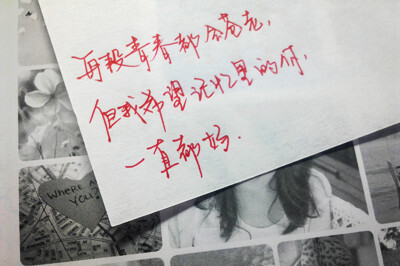 再段青春都会苍老,
但我希望记忆里的你,
一直都好.
WHERE A
YOU?